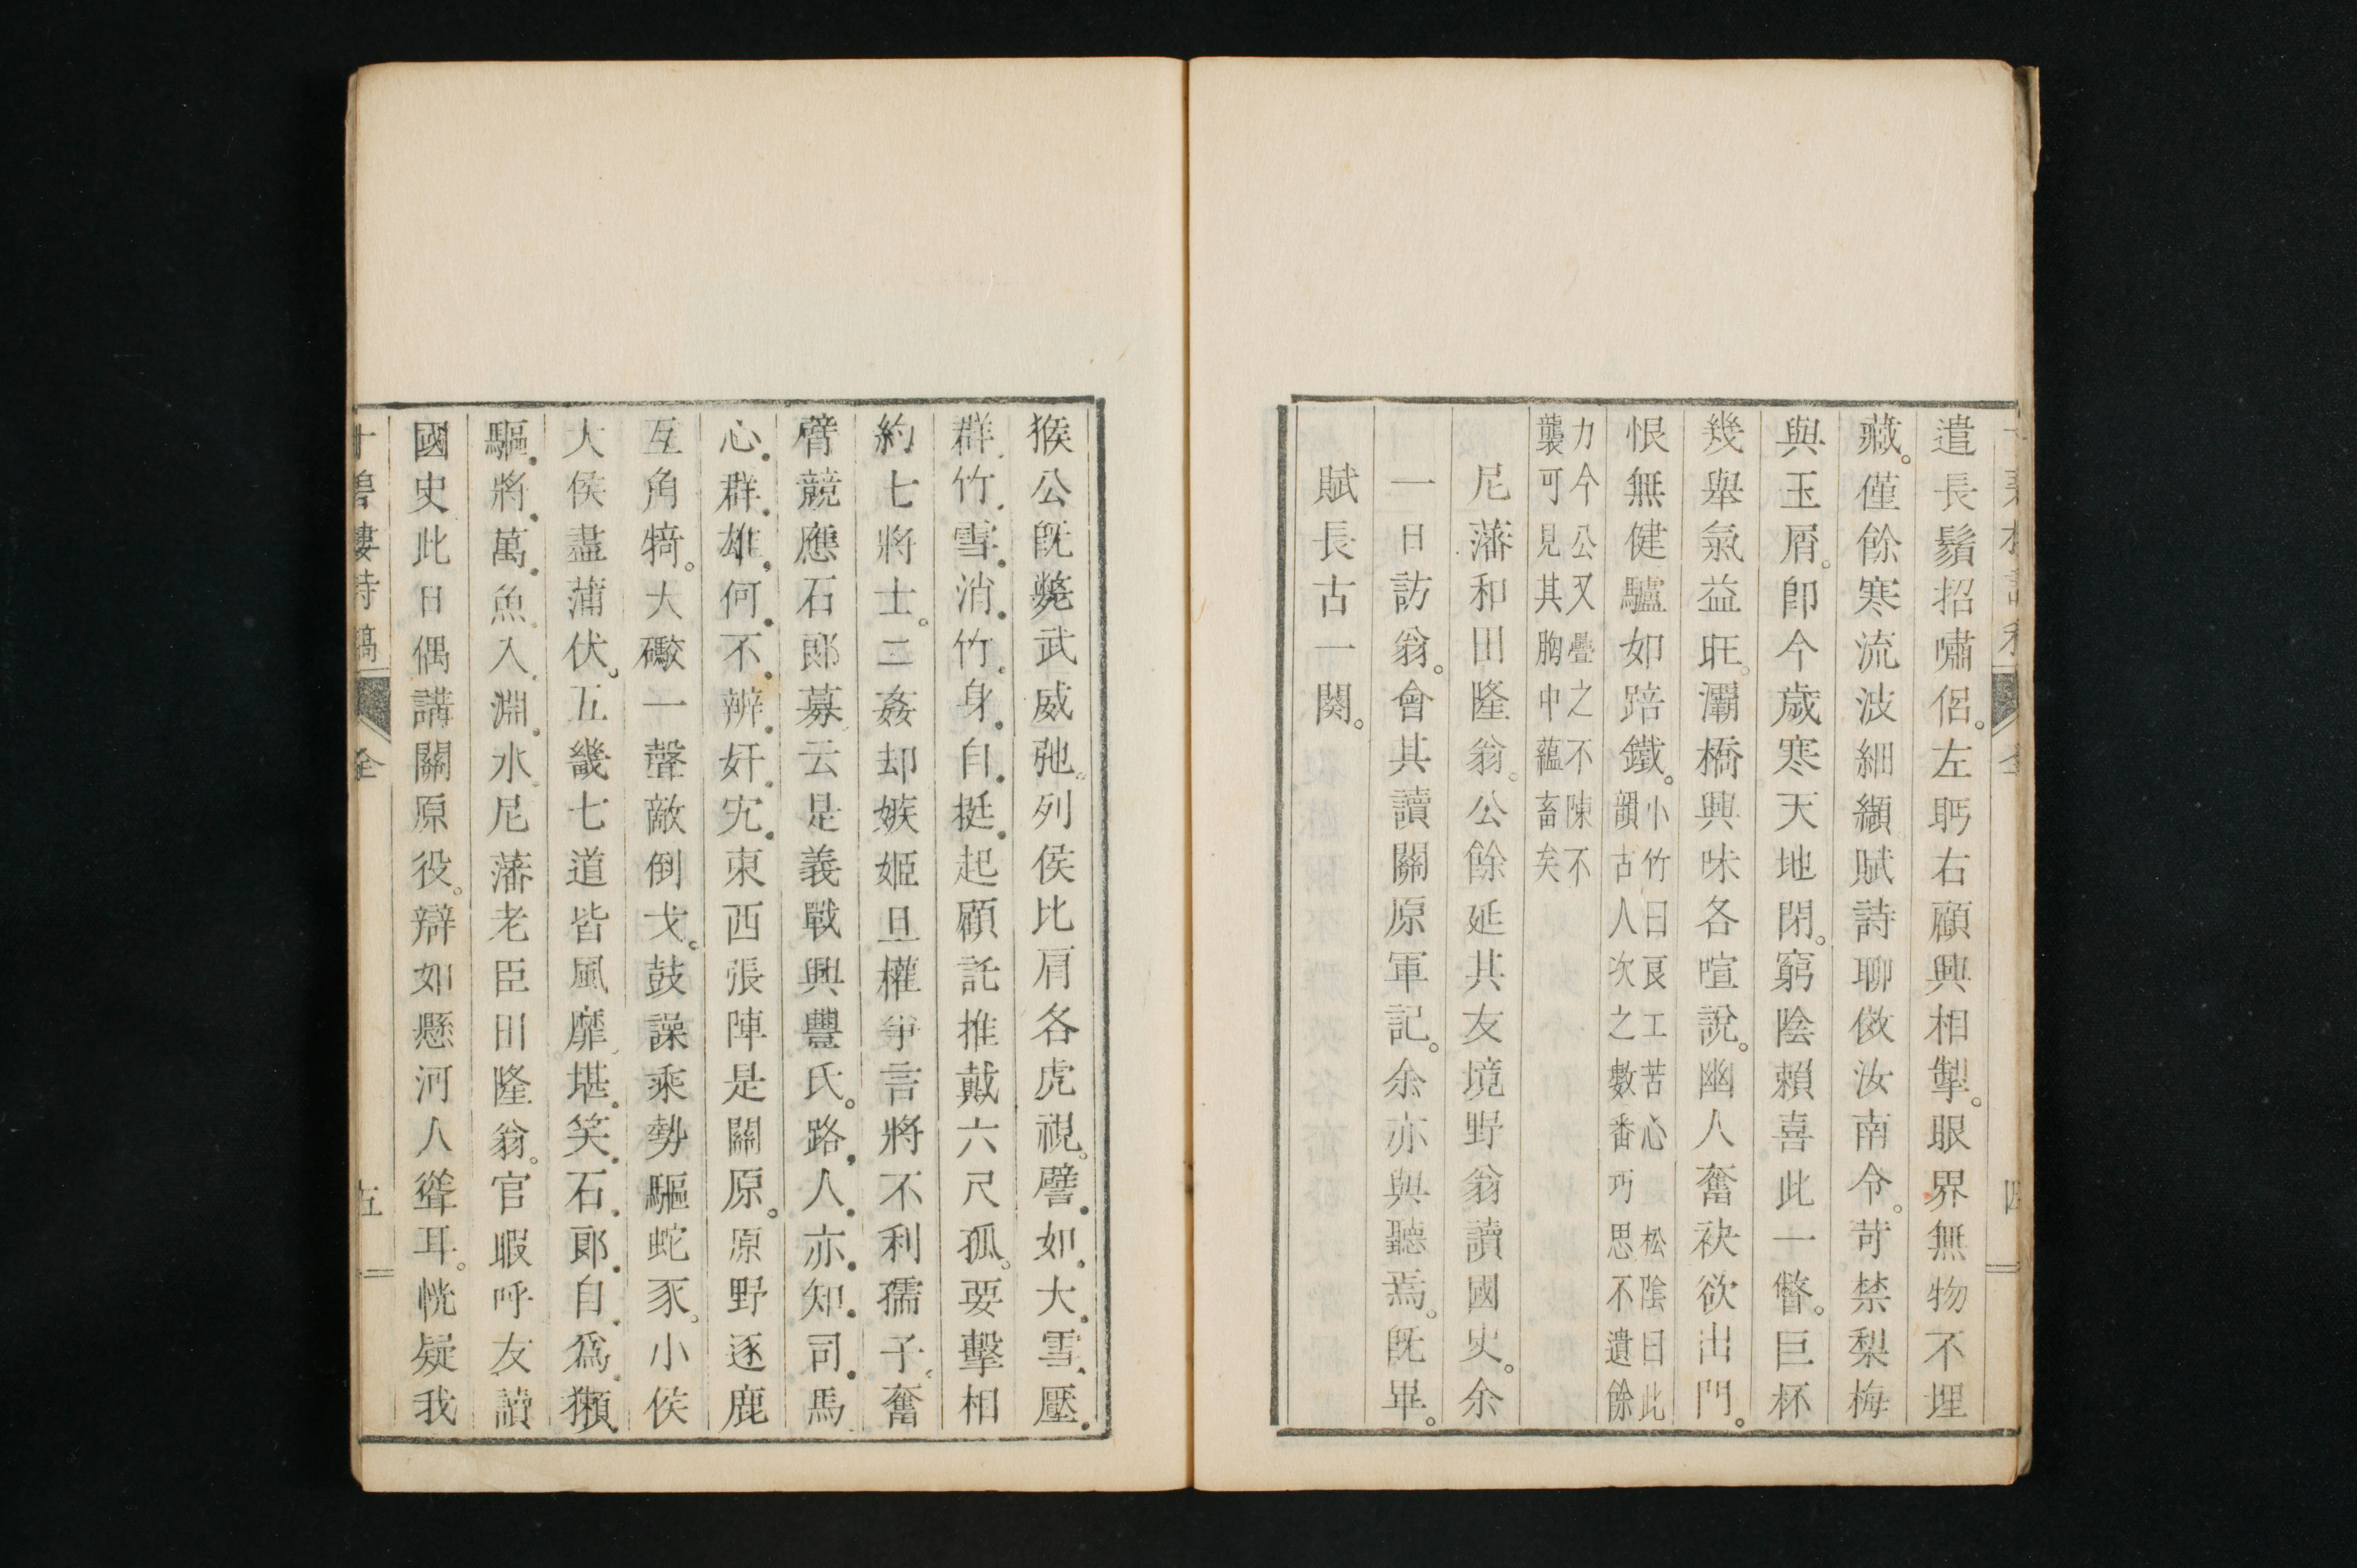 遣長鬚招嘯侶。左眄右顧興相掣。眼界無物不埋
藏。僅餘寒流波細纈賦詩聊倣汝南令。苛禁梨梅
與玉屑。卽今歲寒天地閉。窮陰賴喜此一瞥。巨杯
幾舉氣益旺。灞橋興味各喧說。幽人奮袂欲出門。
恨無健驢如踣鐵。
小竹曰良工苦心 松陰曰此
韻古人次之數番巧思不遺餘
力今公又疊之不陳不
襲可見其胸中蘊畜矣
尼藩和田隆翁。公餘延其友境野翁讀國史。余
一日訪翁。會其讀關原軍記。余亦與聽焉。既畢。
賦長古一闋。
四
猴公既斃武威弛。列侯比肩各虎視。譬如大雪壓
群竹雪消竹身自挺起顧託推戴六尺孤。要擊相
約七將士。二姦却嫉姬旦權爭言將不利孺子。奮
臂競應石郎募云是義戰興豐氏。路人亦知司馬
心群雄何不辨奸宄東西張陣是關原。原野逐鹿
互角犄。大礮一聲敵倒戈。鼓譟乘勢驅蛇豕。小侯
大侯盡蒲伏。五畿七道皆風靡堪笑石郎自爲獺
驅將萬魚入淵水尼藩老臣田隆翁。官暇呼友讀
國史此日偶講關原役。辯如懸河人聳耳。恍疑我
十碧樓詩稿 全 五